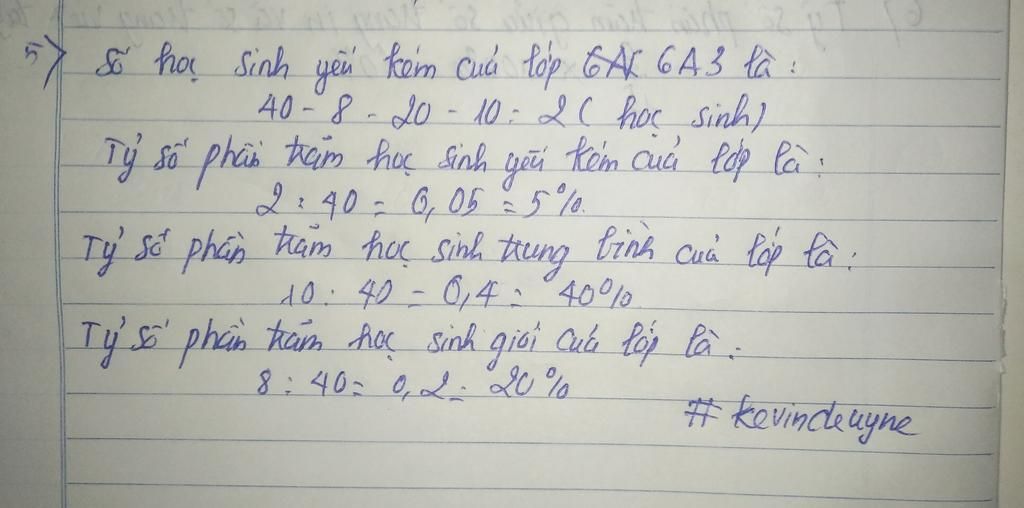 5) Số học sinh yếu kém của lớp 6A3 là:
40 - 8 - 20 - 10 = 2 ( học sinh)
Tỷ số phần trăm học sinh yếu kém của lớp là:
2 : 40 = 0,05 = 5%.
Tỷ số phần trăm học sinh trung bình của lớp là:
10 : 40 = 0,4 = 40%
Tỷ số phần trăm học sinh giỏi của lớp là:
8 : 40 = 0,2 = 20%
# kevindeuyne